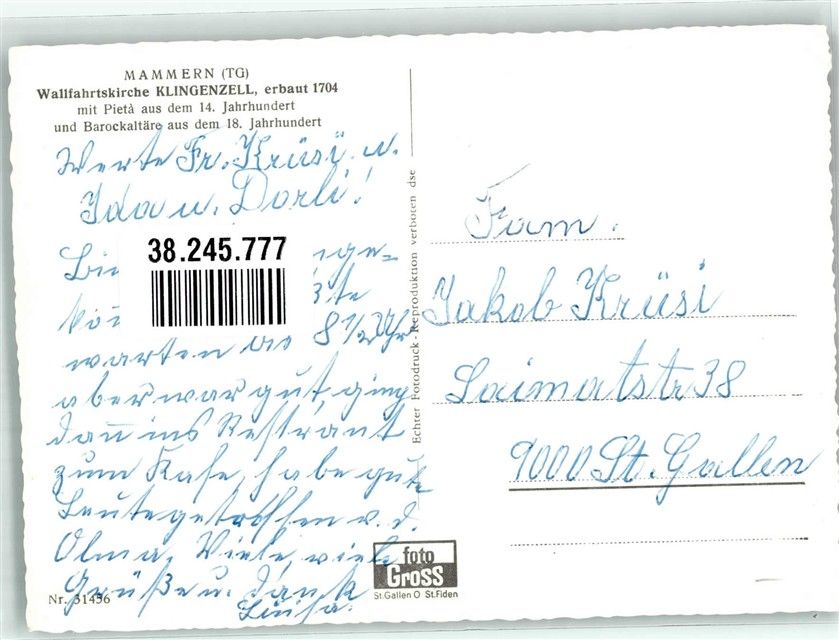 MAMMERN (TG)
Wallfahrtskirche KLINGENZELL, erbaut 1704
mit Pietà aus dem 14. Jahrhundert
und Barockaltäre aus dem 18. Jahrhundert
Werte Fr. Krüsi u.
Ida u. Dorli!
38.245.777
8 ½ Uhr
warten
aber war gut, ging
dan̄ ins Restrant
zum Kafe, habe gute
Leute getroffen v. d.
Olma. Viele, viele
Grüße u. Dank
Luisa.
Nr. 31456
Echter Fotodruck - Reproduktion verboten dse
Fam.
Jakob Krüsi
Laimatstr 38
9000 St. Gallen
foto
Gross
St.Gallen O St.Fiden